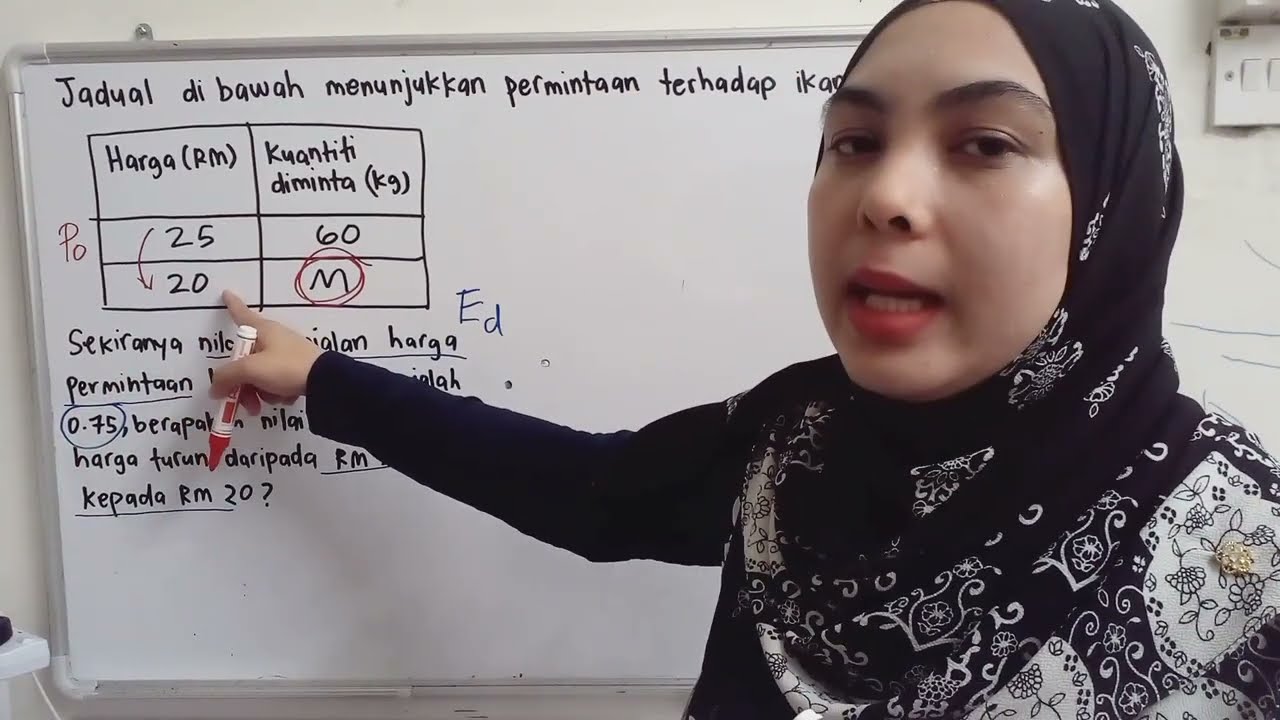 Jadual di bawah menunjukkan permintaan terhadap ikan
Harga (RM) Kuantiti diminta (kg)
Po 25 60
20 M
Ed
Sekiranya harga
permintaan ialah
0.75, berapakah
harga turun daripada RM
kepada RM 20?